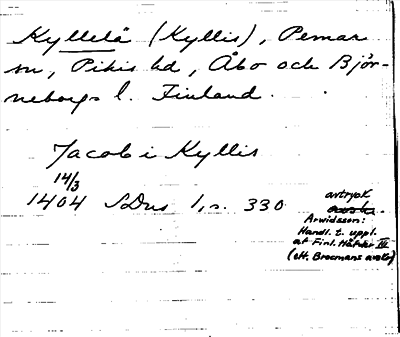 Kyllelä (Kyllis), Pemar
sn, Pikis hd, Åbo och Björ-
neborgs l. Finland.
Jacob i Kyllis
14/3
1404 SDns 1, s. 330
avtryck
Arwidsson:
Handl. t. uppl.
af Finl. Häfder III
(ett. Brocmans avskr)